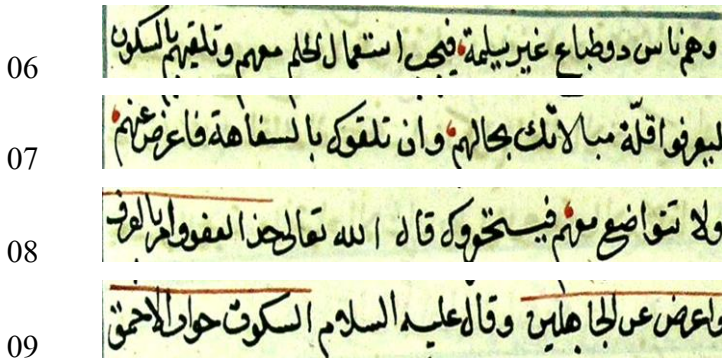 06 وهم ناس دو طباع غير سليمة فيجب استعمال الحلم معهم وتلقيهم بالسكون
07 ليعرفوا قلّة مبالاتك بحالهم وان تلقوك بالسفاهة فاعرض عنهم
08 ولا تتواضع معهم قال الله تعالى خذ العفو وامر بالعرف
09 واعرض عن الجاهلين وقال عليه السلام السكوت جواب الاحمق